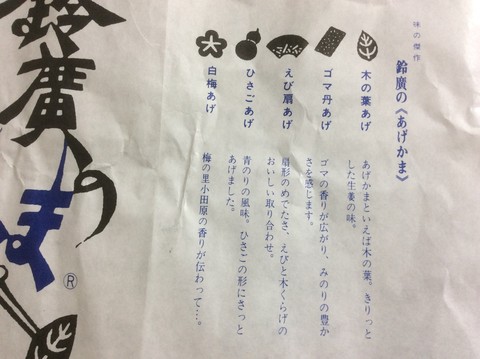 味の傑作
鈴廣の《あげかま》
木の葉あげ
あげかまといえば木の葉。きりっと
した生姜の味。
ゴマ丹あげ
ゴマの香りが広がり、みのりの豊か
さを感じます。
えび扇あげ
扇形のめでたさ、えびと木くらげの
おいしい取り合わせ。
ひさごあげ
青のりの風味。ひさごの形にさっと
あげました。
白梅あげ
梅の里小田原の香りが伝わって…。
鈴廣の
ま
®